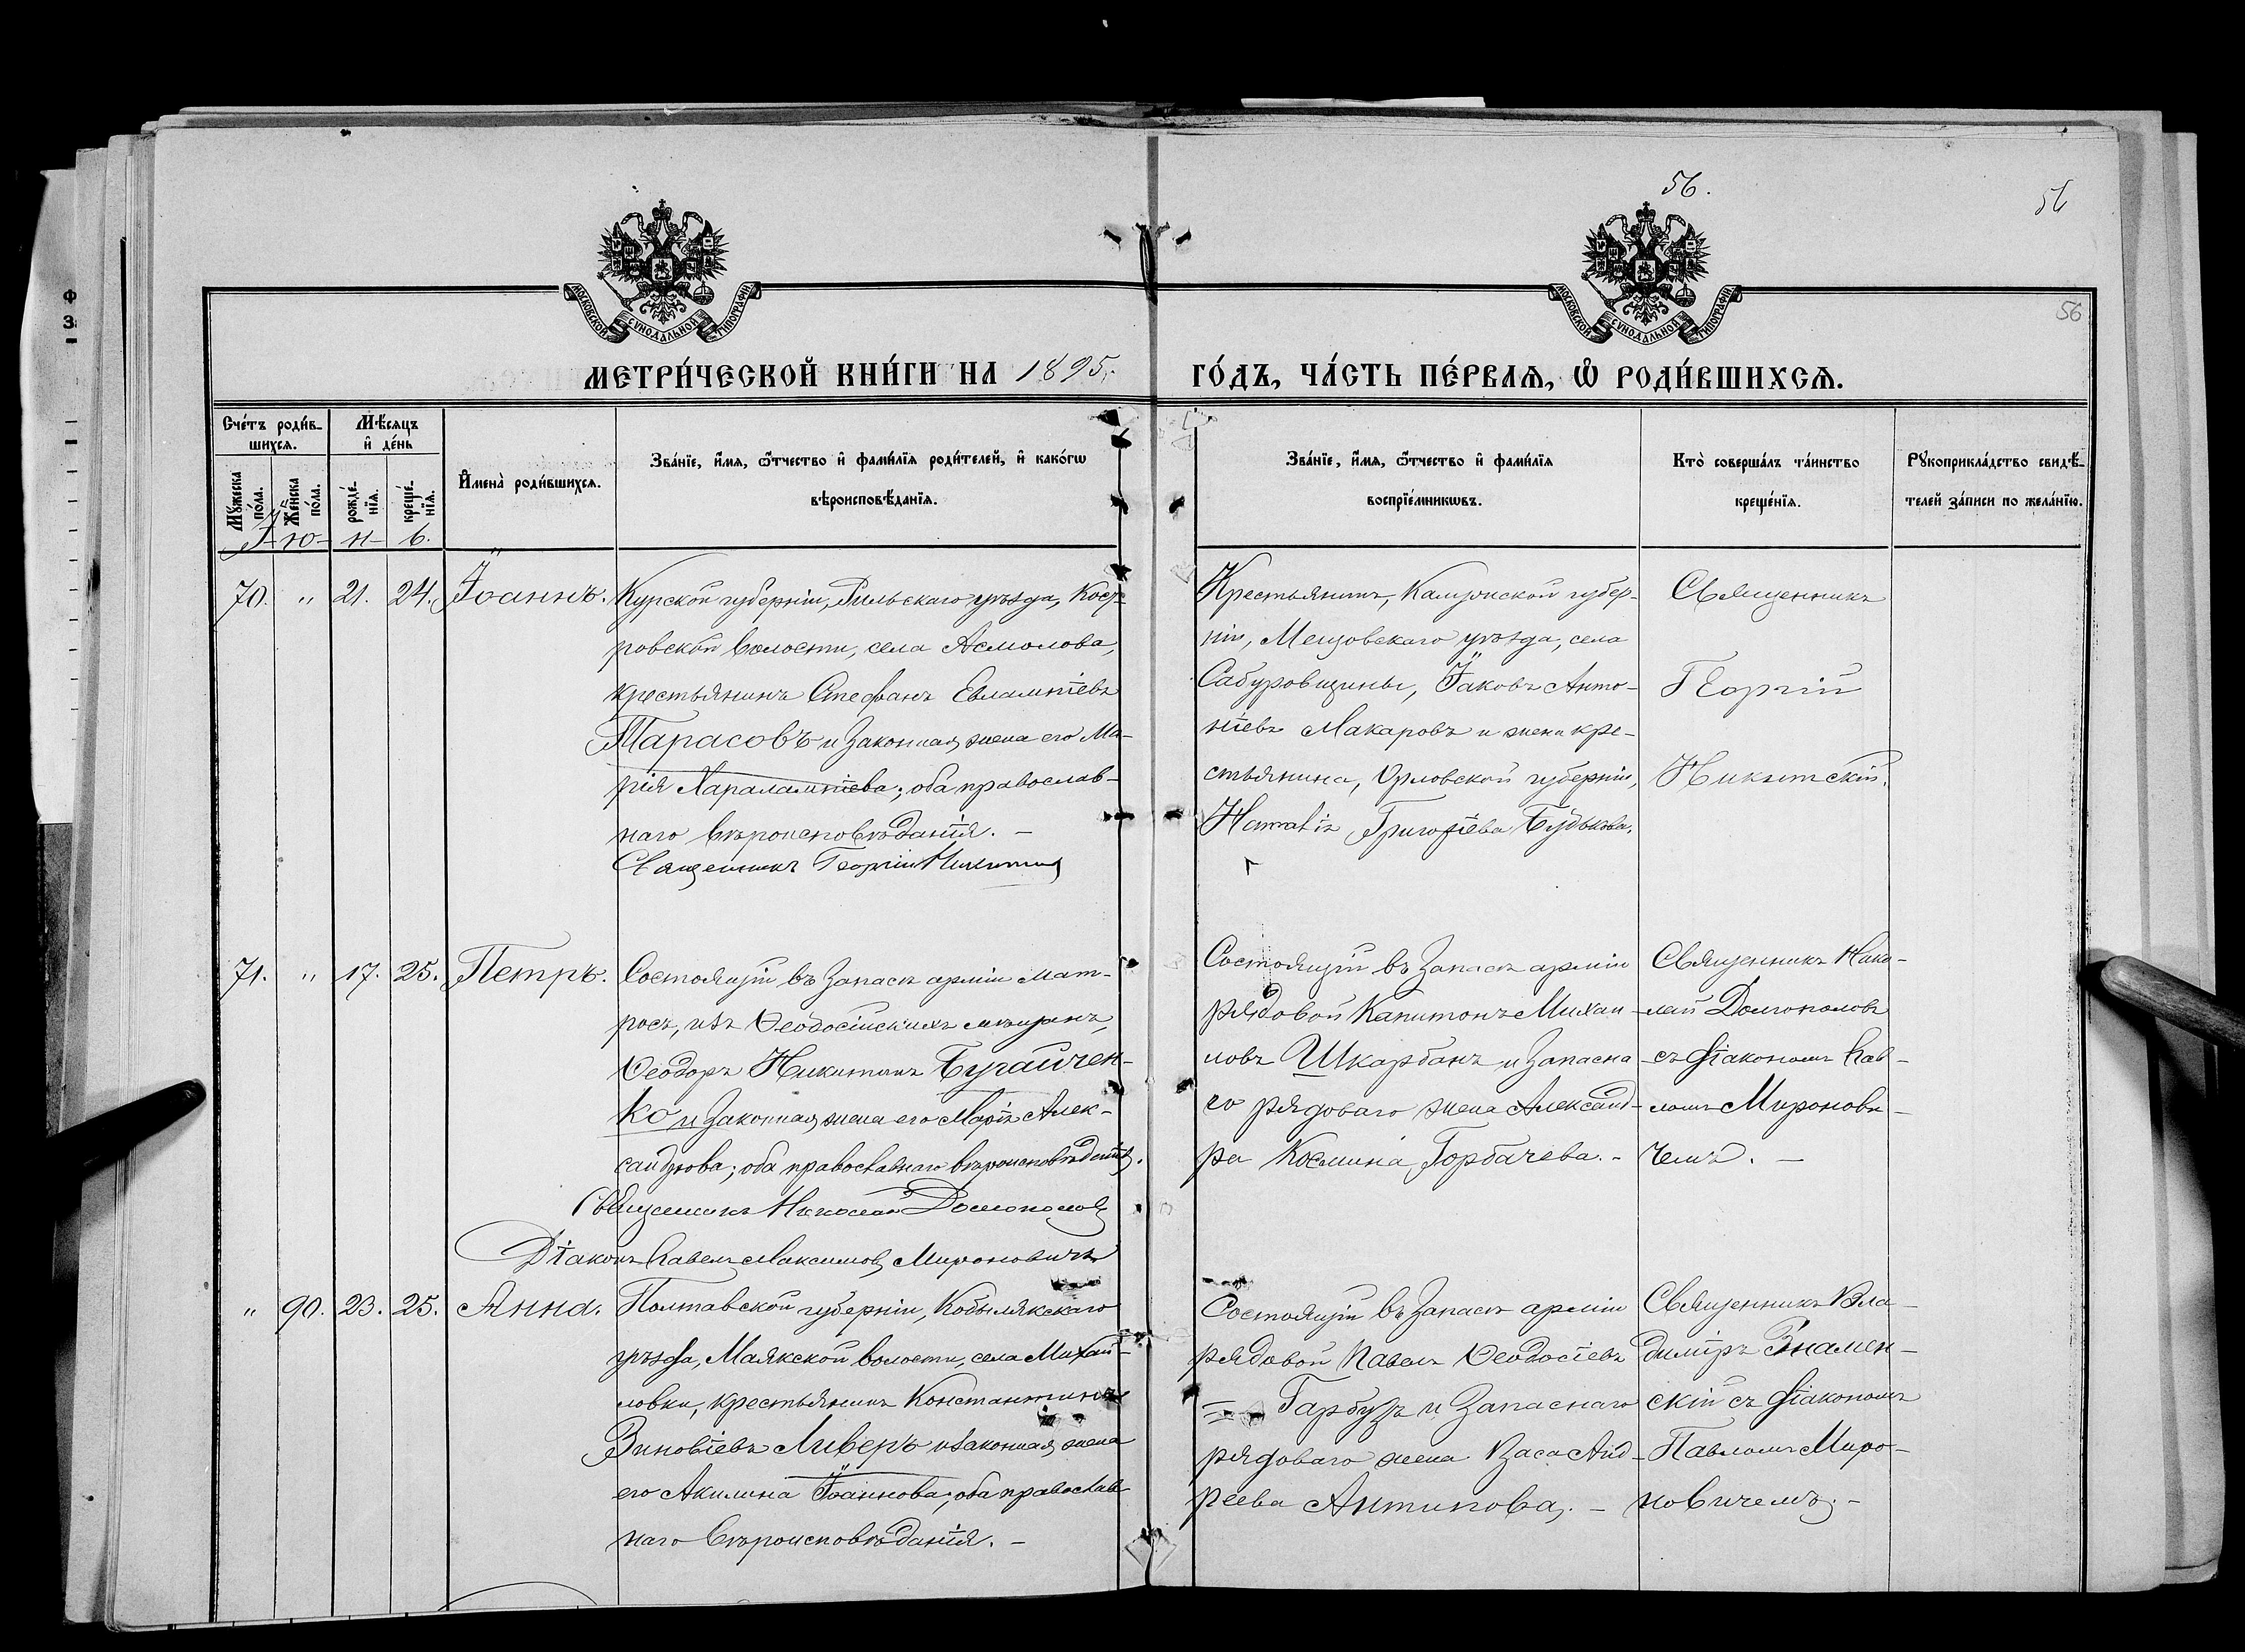 56.
56
56
МОСКОВСКОЙ СѴНОДАЛЬНОЙ ТИПОГРАФІИ
МОСКОВСКОЙ СѴНОДАЛЬНОЙ ТИПОГРАФІИ
МЕТРИ́ЧЕСКОЙ КНИ́ГИ НА 1895 ГО́ДЪ, ЧА́СТЬ ПЕ́РВАѦ, Ѽ РОДИ́ВШИХСѦ.
Сче́тъ роди́в-
шихсѧ.
Мꙋ́жеска по́ла.
Же́нска по́ла.
Мѣ́сѧцъ
и҆ де́нь
рожде́нїѧ.
креще́нїѧ.
И҆мена̀ роди́вшихсѧ.
Зва́нїе, и҆́мѧ, ѻ҆́тчество и҆ фами́лїѧ роди́телей, и҆ како́гѡ
вѣроисповѣ́данїѧ.
Зва́нїе, и҆́мѧ, ѻ҆́тчество и҆ фами́лїѧ
воспрїе́мникѡвъ.
Кто̀ соверша́лъ та́инство
креще́нїѧ.
Рꙋкоприкла́дство свидѣ́-
телей за́писи по жела́нїю.
І-ю-н-ь.
70. " 21. 24. Іоаннъ.
Курской губерніи, Рильскаго уѣзда,
ровской волости, села Асмолова,
крестьянинъ Стефанъ Евлампіевъ
Тарасовъ и законная жена его Ма-
рія Харалампіева; оба православ-
наго вѣроисповѣданія. –
Священникъ Георгій Никитскій
Крестьянинъ, Калужской губер-
ніи, Мещовскаго уѣзда, села
Сабуровщины, Іаковъ Анто-
ніевъ Макаровъ и жена кре-
стьянина, Орловской губерніи,
Наталія Григоріева Будыкова.
Священникъ
Георгій
Никитскій.
71. " 17. 25. Петръ.
Состоящій въ запасѣ арміи мат-
росъ, изъ Ѳеодосійскихъ мѣщанъ,
Ѳеодоръ Никитинъ Бугайчен-
ко и законная жена его Марія Алек-
сандрова; оба православнаго вѣроисповѣданія.
Священникъ Николай Долгополовъ
Діаконъ Павелъ Максимовъ Мироновичъ
Состоящій въ запасѣ арміи
рядовой Капитонъ Михаи-
ловъ Шкарбанъ и запасна-
го рядоваго жена Александ-
ра Космина Горбачева. –
Священникъ Нико-
лай Долгополовъ
съ діакономъ Пав-
ломъ Миронови-
чемъ. –
" 90. 23. 25. Анна.
Полтавской губерніи, Кобылякскаго
уѣзда, Маякской волости, села Михай-
ловки, крестьянинъ Константинъ
Зиновіевъ Ливеръ и законная жена
его Акилина Іоаннова; оба православ-
наго вѣроисповѣданія. –
Состоящій въ запасѣ арміи
рядовой Павелъ Ѳеодосіевъ
Гарбузъ и запаснаго
рядоваго жена Васа Анд-
реева Антипова. –
Священникъ Вла-
димиръ Знамен-
скій съ діакономъ
Павломъ Миро-
новичемъ. –